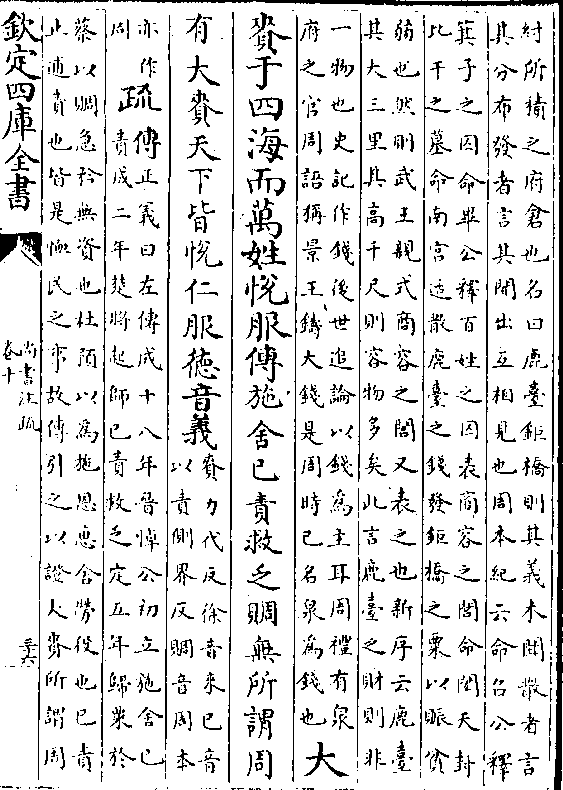 紂所積之府倉也名曰鹿臺鉅橋則其義未聞散者言
其分布發者言其開出互相見也周本紀云命召公釋
箕子之囚命畢公釋百姓之囚表商容之閭命閎夭封
比干之墓命南宮适散鹿臺之錢發鉅橋之粟以賑貧
弱也然則武王親式商容之閭又表之也新序云鹿臺
其大三里其高千尺則容物多矣此言鹿臺之財則非
一物也史記作錢後世追論以錢為主耳周禮有泉
府之官周語稱景王鑄大錢是周時已名泉為錢也
大
賚于四海而萬姓悅服傳施舍已責救乏賙無所謂周
有大賚天下皆悅仁服德音義
賚力代反徐音來已音
以責側界反賙音周本
亦作
周
疏
傳正義曰左傳成十八年晉悼公初立施舍已
責成二年楚將起師已責救乏定五年歸粟於
蔡以賙急矜無資也杜預以為施恩惠舍勞役也已責
止逋責也皆是恤民之事故傳引之以證大賚所謂周
欽定四庫全書
尚書注疏
卷十